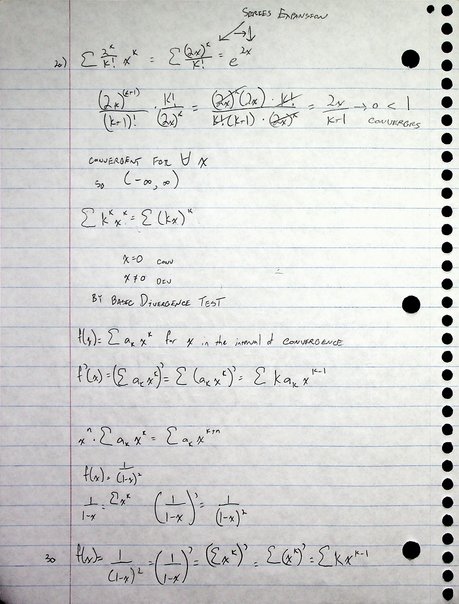 SERIES EXPANSION
20) Σ 2^k/k! x^k = Σ (2x)^k/k! = e^{2x}
(2x)^{(k+1)}/(k+1)! · k!/(2x)^k = (2x)^k(2x) · k!/k!(k+1) · (2x)^k = 2x/k+1 → 0 < 1
CONVERGES
CONVERGENT FOR ∀ x
SO (-∞, ∞)
Σ k^k x^k = Σ (kx)^k
x=0 CONV
x≠0 DIV
BY BASIC DIVERGENCE TEST
f(x) = Σ a_k x^k for x in the interval of CONVERGENCE
f'(x) = (Σ a_k x^k)' = Σ (a_k x^k)' = Σ k a_k x^{k-1}
x^n · Σ a_k x^k = Σ a_k x^{k+n}
f(x) = 1/(1-x)^2
1/1-x = Σx^k (1/1-x)' = 1/(1-x)^2
30 f(x) = 1/(1-x)^2 = (1/1-x)' = (Σx^k)' = Σ(x^k)' = Σ k x^{k-1}